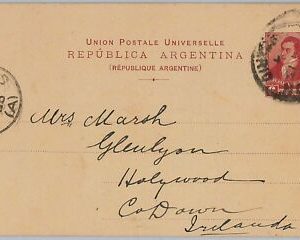 UNION POSTALE UNIVERSELLE
REPÚBLICA ARGENTINA
(RÉPUBLIQUE ARGENTINE)
Mrs Marsh
Glenlyon
Holywood
Co Down
Ireland
(A)